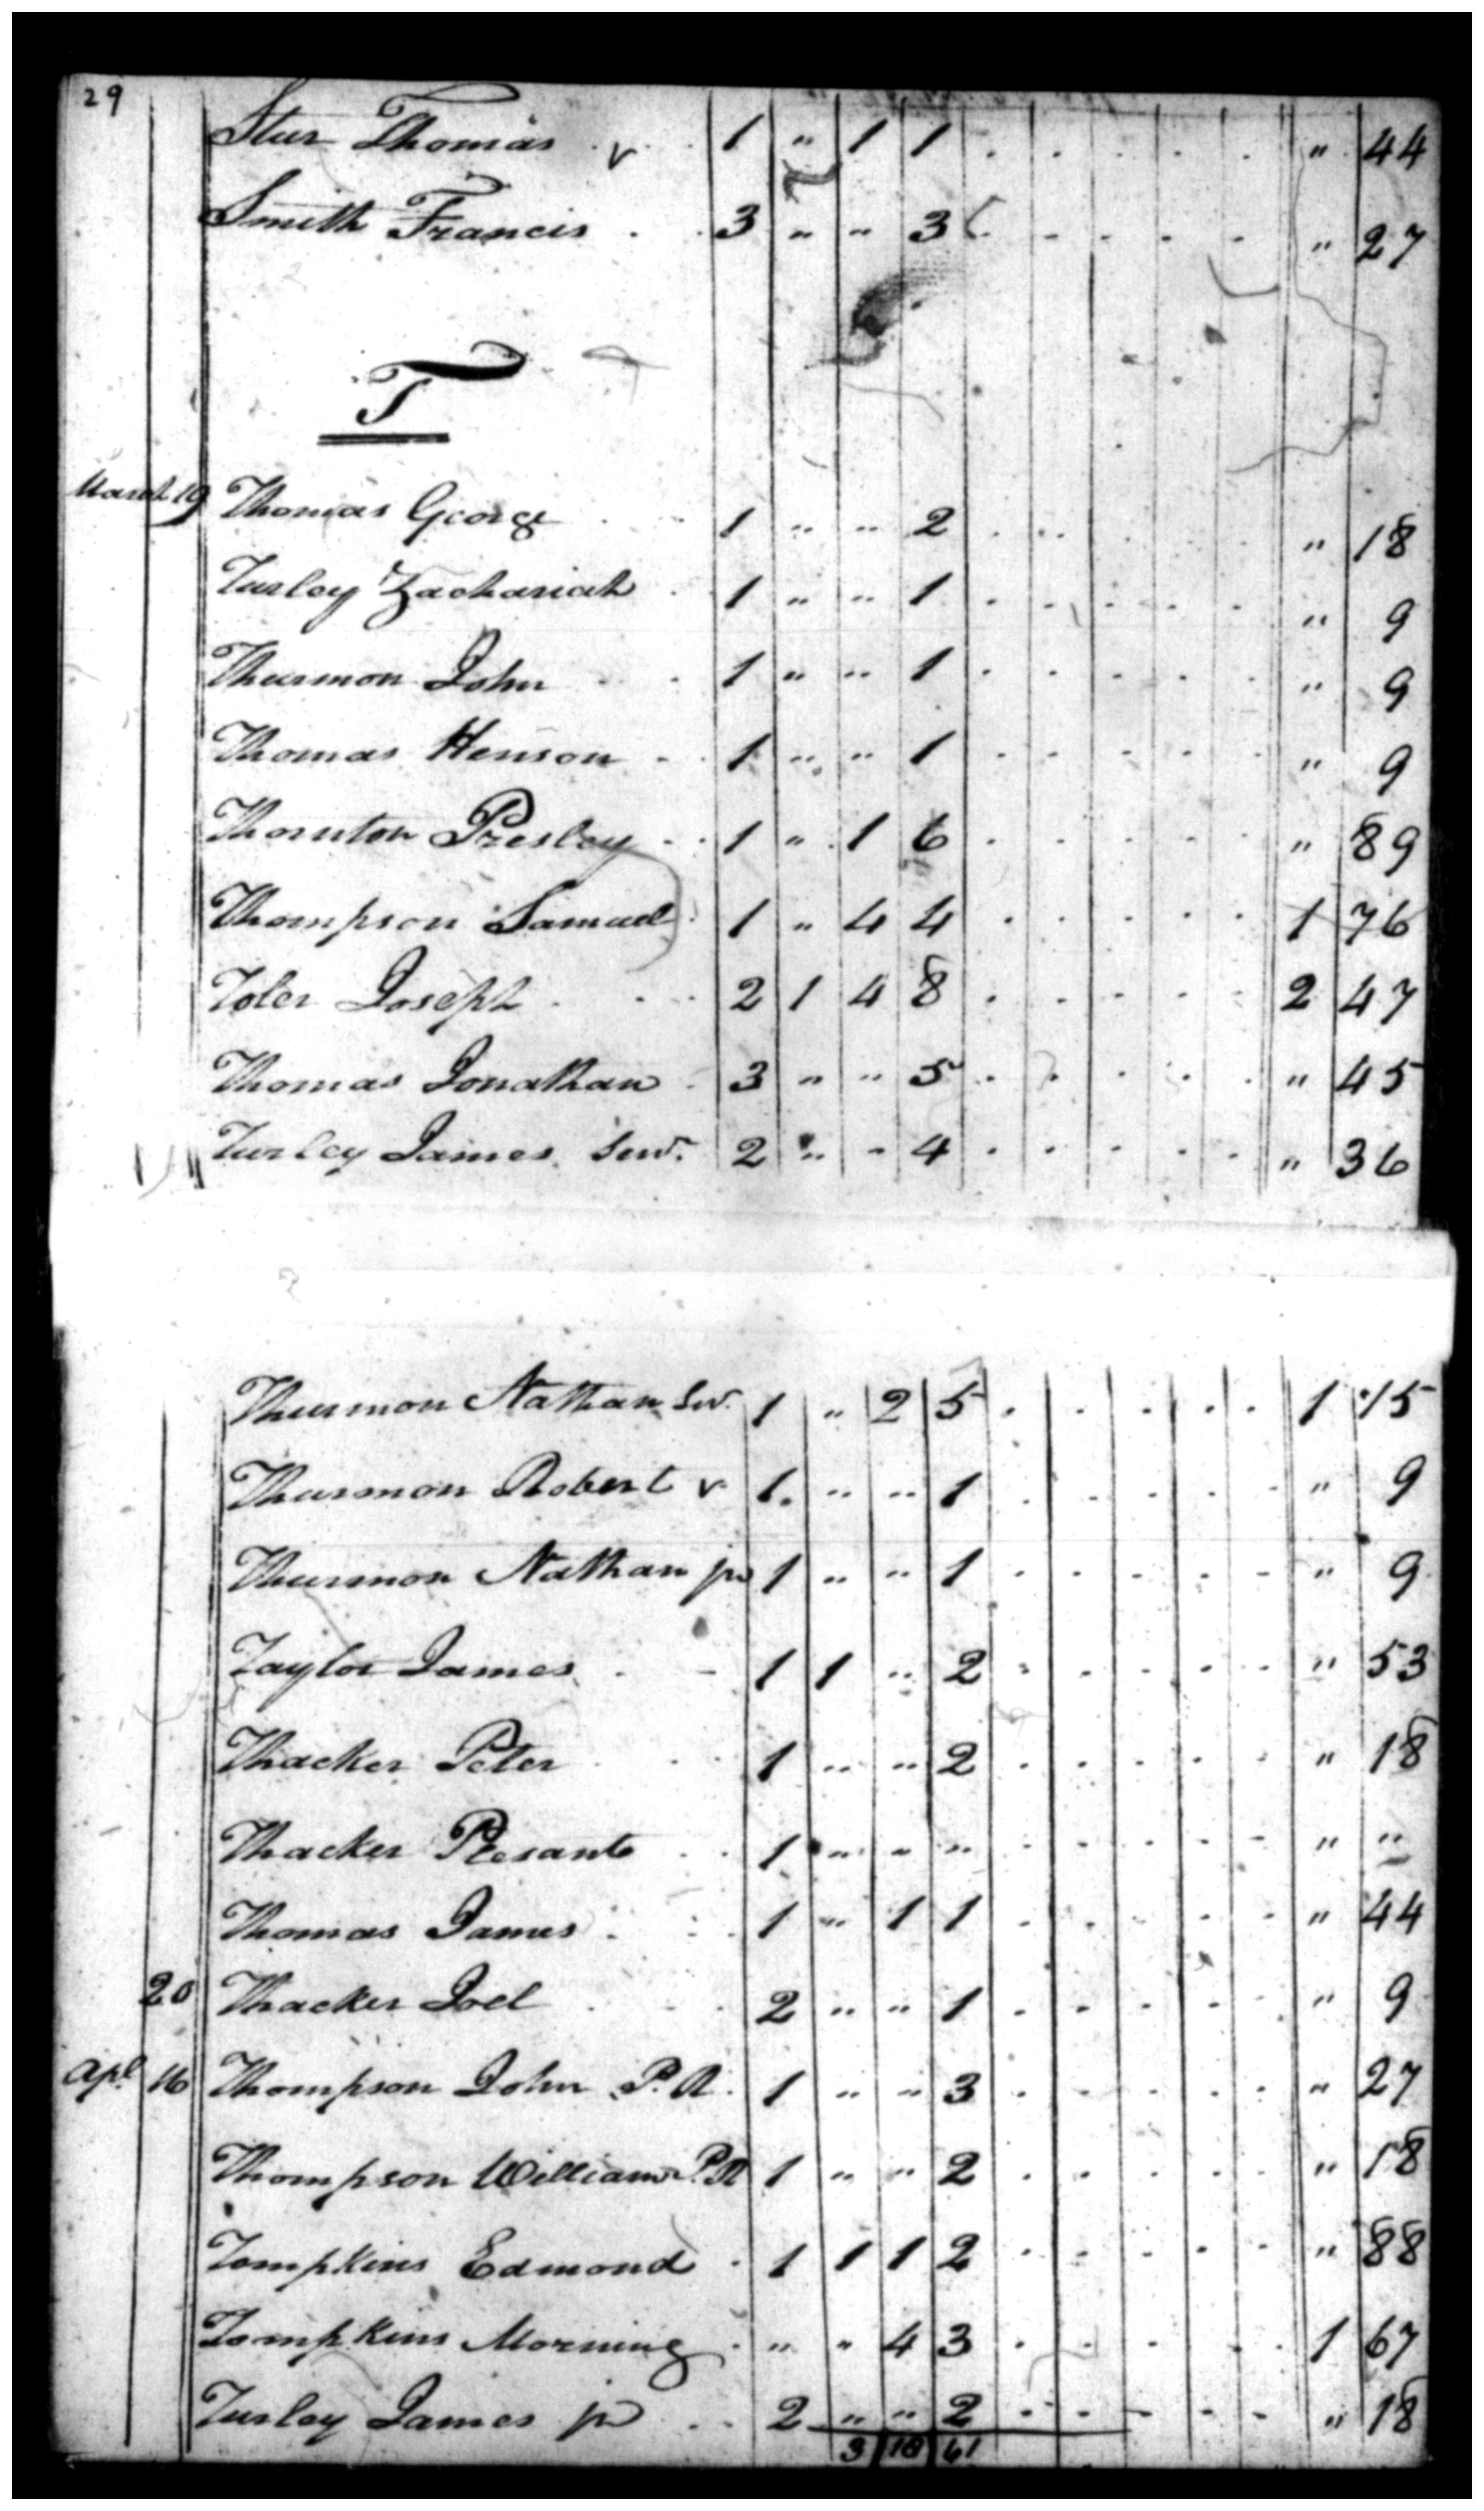 29
Stur Thomas v 1 " 1 1 . . . . . " 44
Smith Francis . . 3 " " 3 . - - - - " 27
T
March 19 Thomas George 1 " " 2 . . . . . " 18
Turley Zachariah . 1 " " 1 . . . . . " 9
Thurmon John . . 1 " " 1 . . . . . " 9
Thomas Henson . . 1 " " 1 . . . . . " 9
Thornton Presley . . 1 " 1 6 . . . . . " 89
Thompson Samuel . 1 " 4 4 . . . . . 1 76
Toler Joseph . . . 2 1 4 8 . . . . . 2 47
Thomas Jonathan . 3 " " 5 . . . . . " 45
Turley James Senr. 2 " - 4 . . . . . " 36
Thurmon Nathan Sr. 1 " 2 5 . . . . . 1 15
Thurmon Robert v 1. " " 1 . . . . . " 9
Thurmon Nathan jr 1 " " 1 . . . . . " 9
Taylor James . - 1 1 " 2 . . . . . " 53
Thacker Peter . . 1 " " 2 . . . . . " 18
Thacker Plesants . . 1 " " " . . . . . " "
Thomas James . . . 1 " 1 1 . . . . . " 44
20 Thacker Joel . . . 2 " " 1 . . . . . " 9
Apl 16 Thompson John P. R. 1 " " 3 . . . . . " 27
Thompson William P. R 1 " " 2 . . . . . " 18
Tompkins Edmond . 1 1 1 2 . . . . . " 88
Tompkins Morning . " " 4 3 . . . . . 1 67
Turley James jr . . 2 " " 2 . . . . . " 18
3 18 61